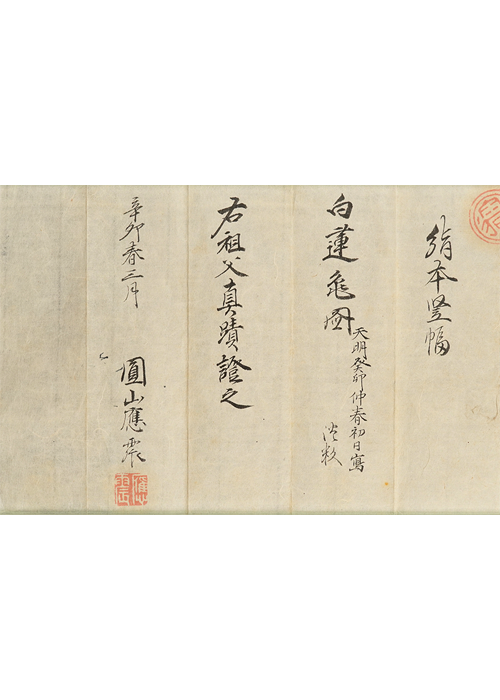 絹本豎幅
白蓮亀図
天明癸卯仲春初日寫
右祖父真蹟證之
辛卯春三月
圓山應震